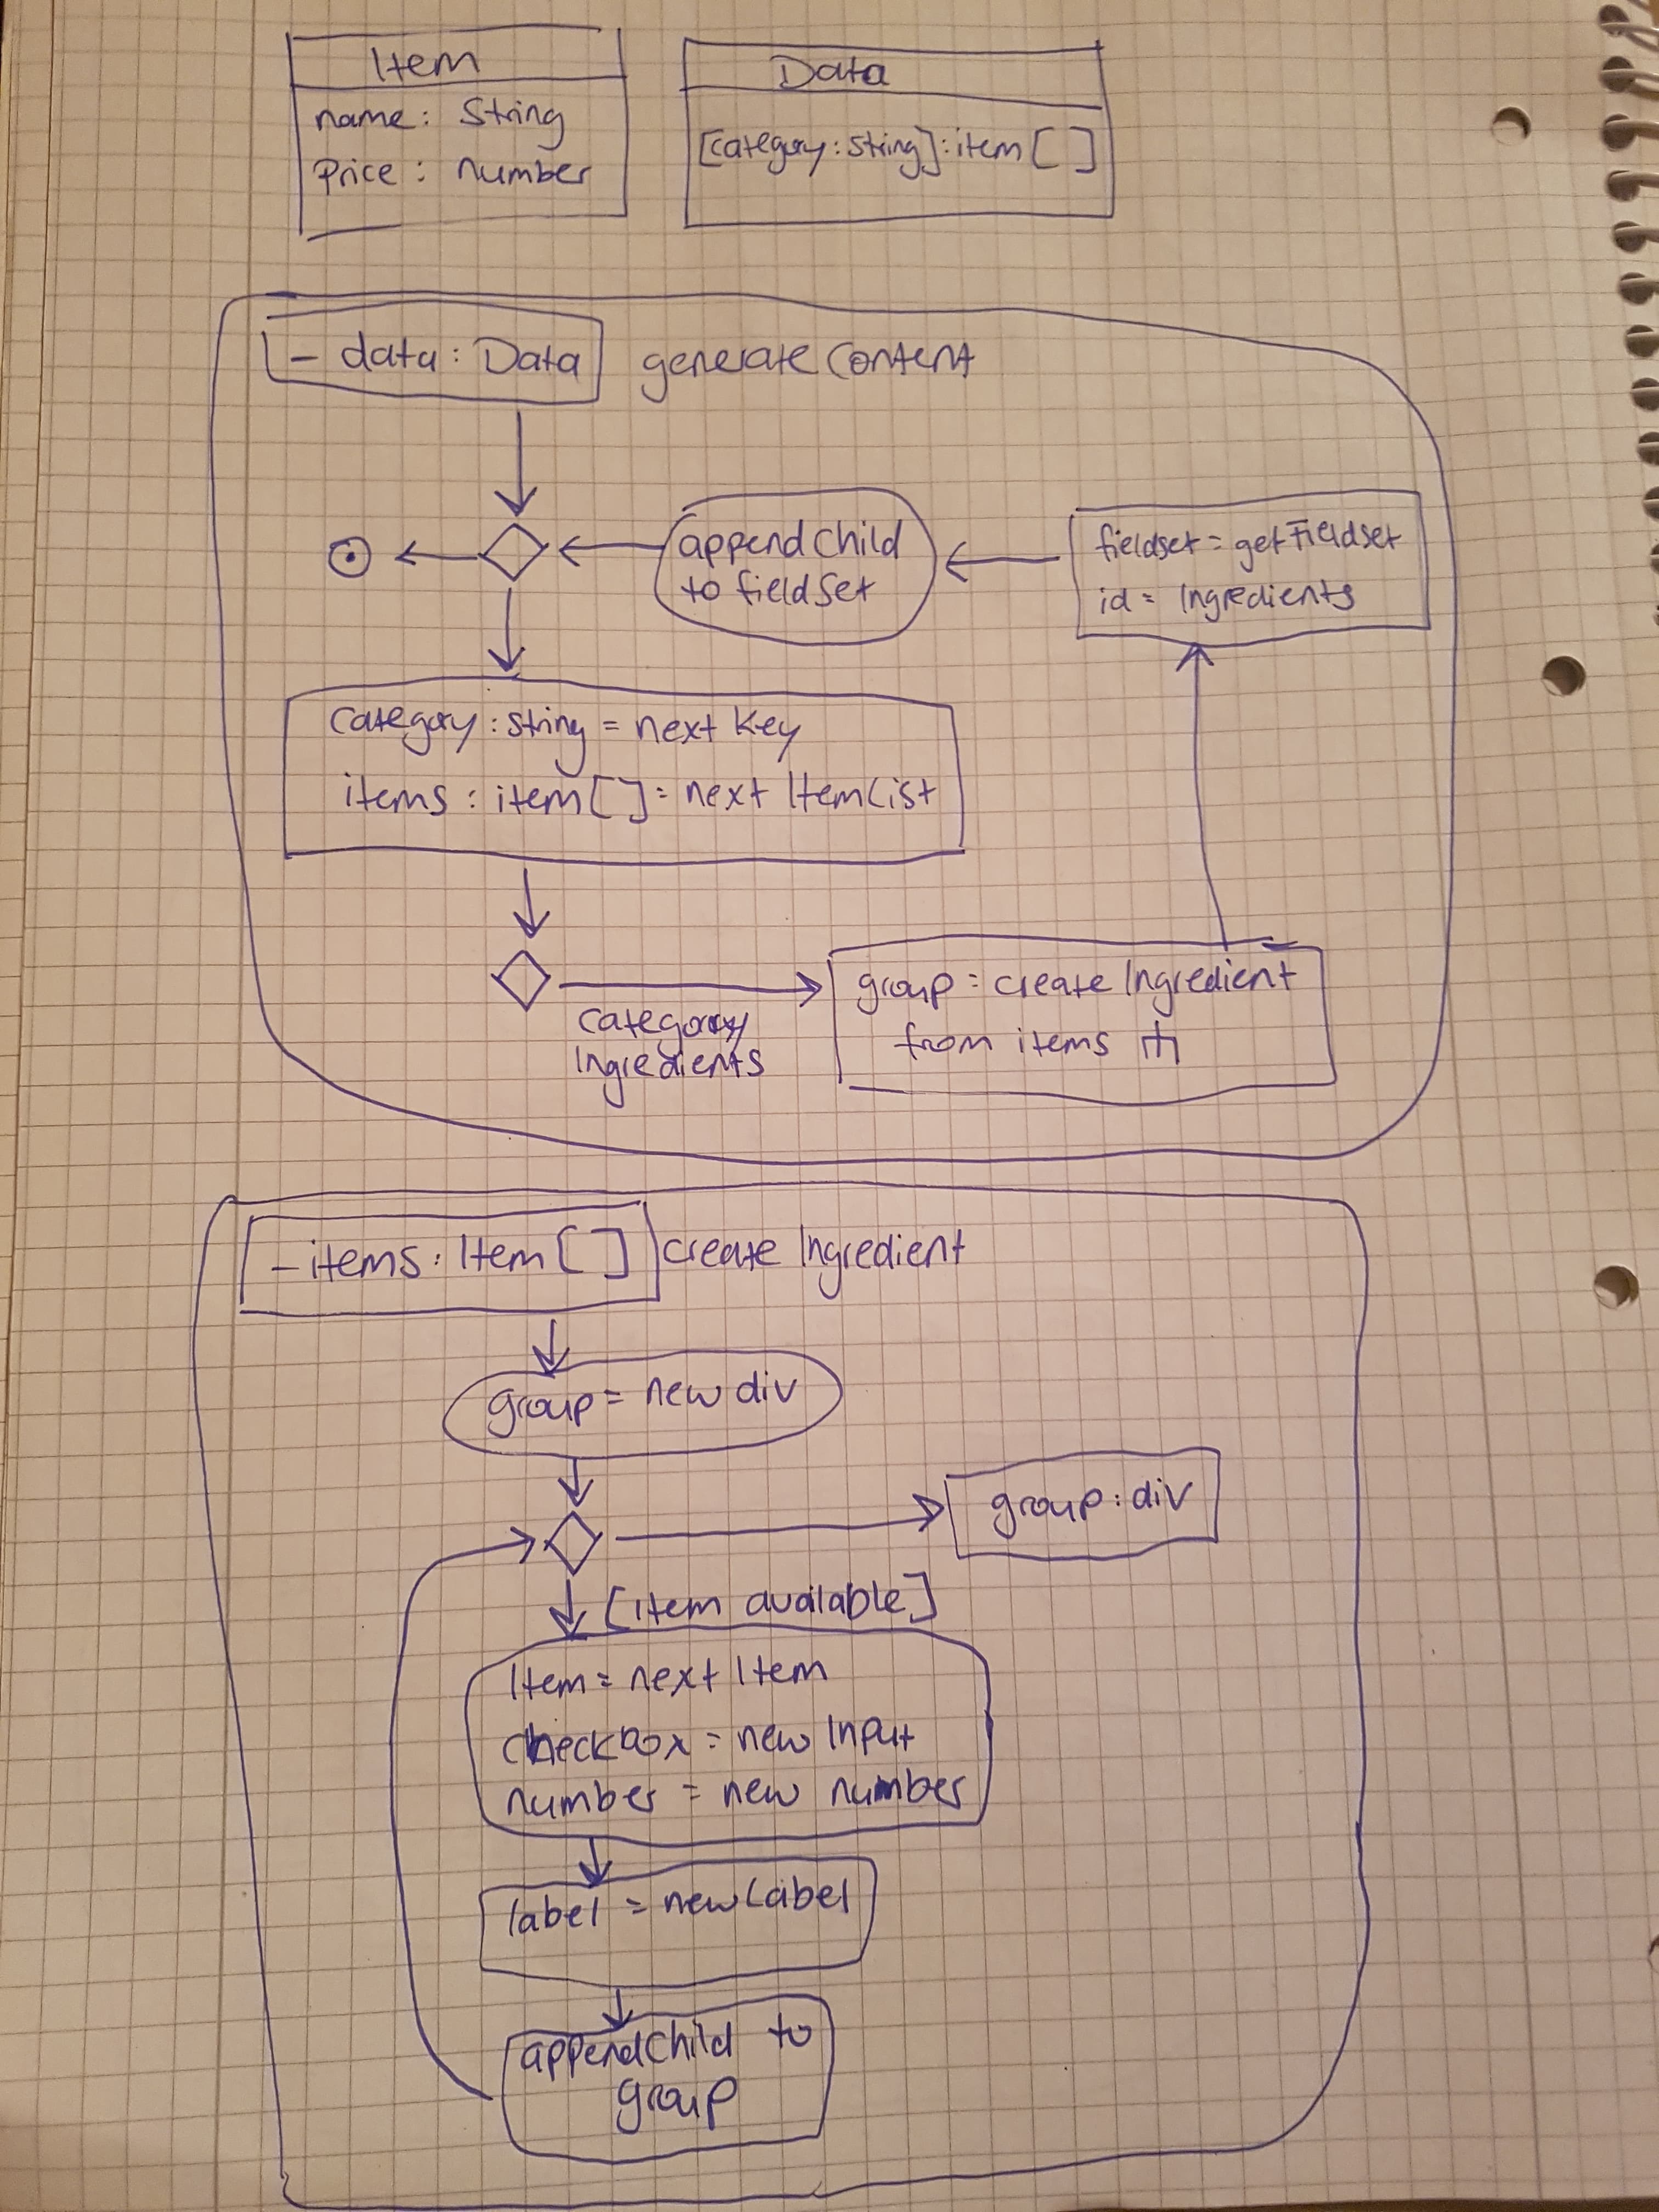 Item
name: String
Price: number
Data
[category: String]: item [ ]
- data: Data
generate Content
appendChild
to fieldSet
fieldset = getFieldset
id = Ingredients
category: string = next key
items: item[ ] = next ItemList
category
Ingredients
group = create Ingredient
from items
- items: Item [ ]
create Ingredient
group = new div
group: div
[item available]
Item = next Item
checkbox = new Input
number = new number
label = new Label
appendChild to
group